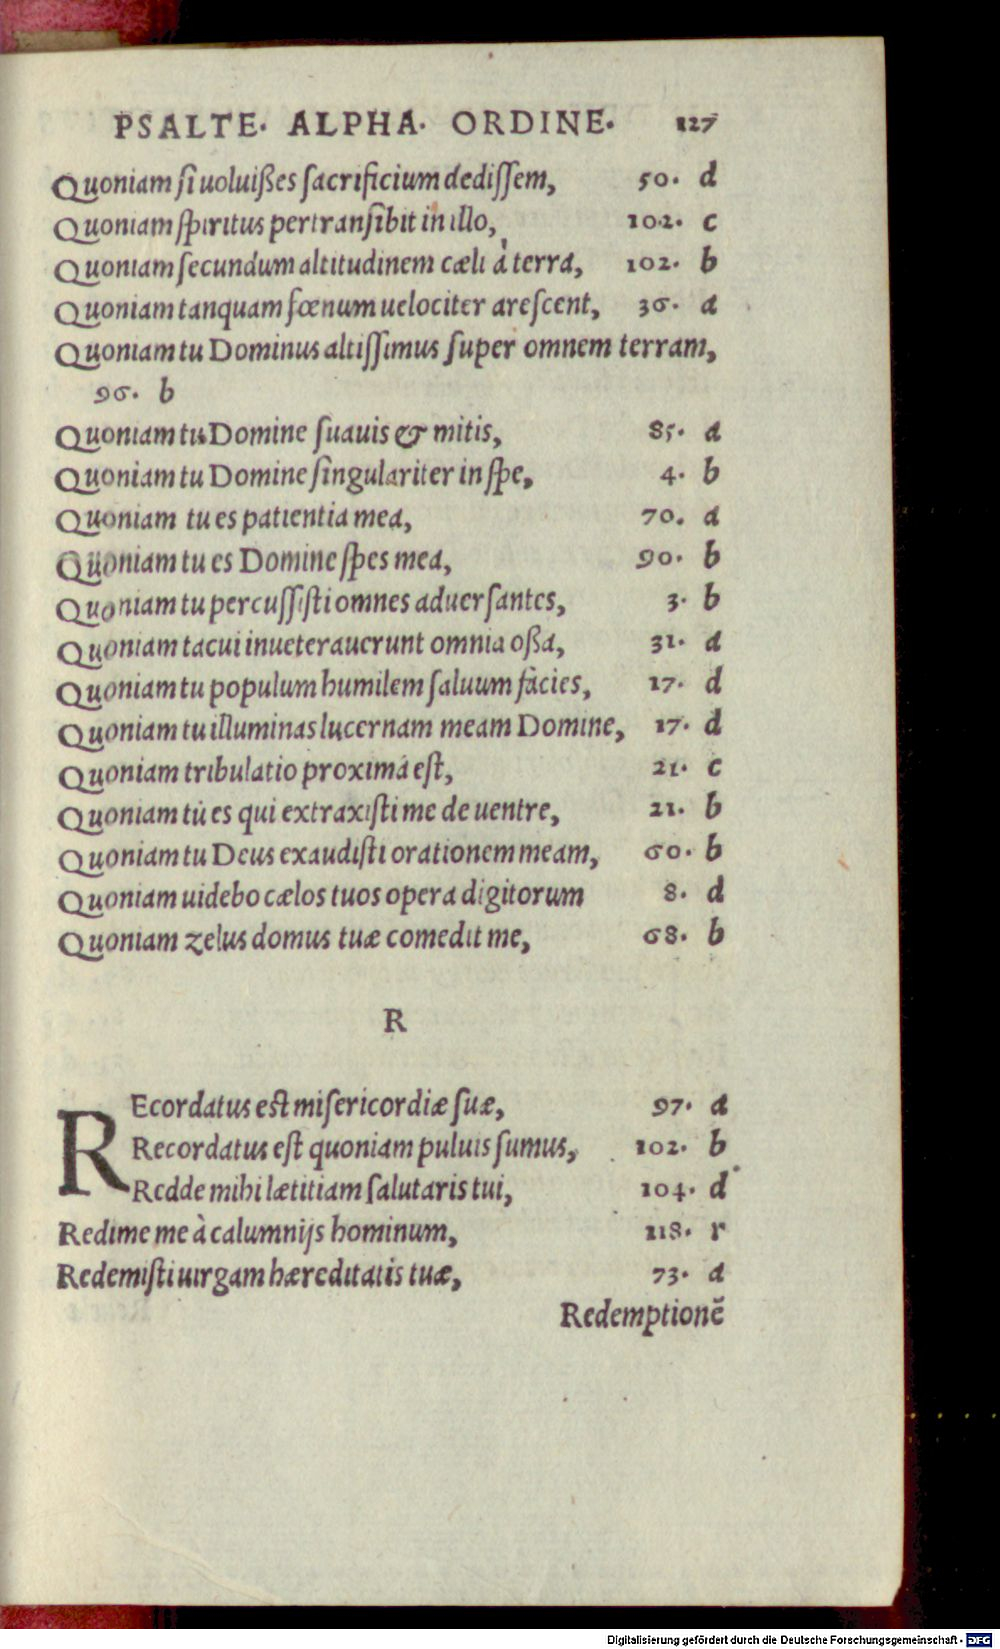 PSALTE. ALPHA. ORDINE. 127
Quoniam si uoluißes sacrificium dedissem, 50. d
Quoniam spiritus pertransibit in illo, 102. c
Quoniam secundum altitudinem cæli à terra, 102. b
Quoniam tanquam fœnum uelociter arescent, 36. a
Quoniam tu Dominus altissimus super omnem terram,
96. b
Quoniam tu Domine suauis & mitis, 85. a
Quoniam tu Domine singulariter in spe, 4. b
Quoniam tu es patientia mea, 70. a
Quoniam tu es Domine spes mea, 90. b
Quoniam tu percussisti omnes aduersantes, 3. b
Quoniam tacui inueterauerunt omnia oßa, 31. a
Quoniam tu populum humilem saluum facies, 17. d
Quoniam tu illuminas lucernam meam Domine, 17. d
Quoniam tribulatio proxima est, 21. c
Quoniam tu es qui extraxisti me de uentre, 21. b
Quoniam tu Deus exaudisti orationem meam, 60. b
Quoniam uidebo cælos tuos opera digitorum 8. d
Quoniam zelus domus tuæ comedit me, 68. b
R
REcordatus est misericordiæ suæ, 97. a
Recordatus est quoniam puluis sumus, 102. b
Redde mihi lætitiam salutaris tui, 104. d
Redime me à calumnijs hominum, 118. r
Redemisti uirgam hæreditatis tuæ, 73. a
Redemptionē
Digitalisierung gefördert durch die Deutsche Forschungsgemeinschaft - DFG